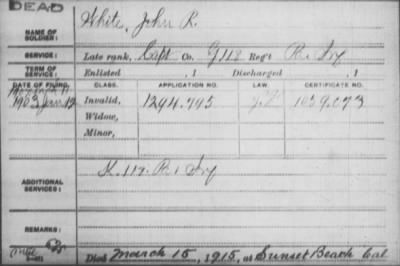 DEAD
NAME OF SOLDIER: White, John R.
SERVICE: Late rank, Capt Co. G 112 Reg't Pa. Inf
TERM OF SERVICE: Enlisted , 1 Discharged , 1
DATE OF FILING. CLASS. APPLICATION NO. LAW. CERTIFICATE NO.
1903 Jan 12 Invalid, 1294.795 1059.073
Widow,
Minor,
ADDITIONAL SERVICES: K. 112. Pa. Inf
REMARKS:
Died March 15, 1915, at Sunset Beach Cal